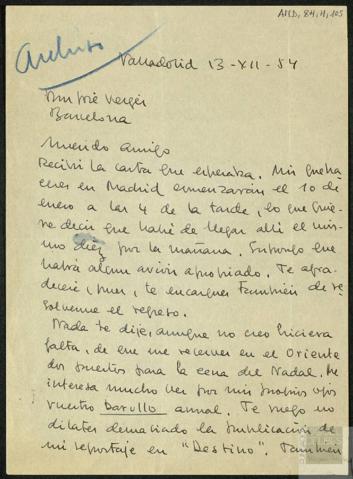 AHD, 84, 4, 105
Archivo
Valladolid 13-XII-54
Barcelona
Querido amigo
Recibí la carta que esperaba. Mis queha
ceres en Madrid comenzarán el 10 de
enero a las 4 de la tarde, lo que quie-
re decir que habré de llegar allí el mis-
mo diez por la mañana. Supongo que
habrá algún avión apropiado. Te agra-
deceré, pues, te encargues también de re-
solverme el regreso.
Nada te dije, aunque no creo hiciera
falta, de que me reserves en el Oriente
dos puestos para la cena del Nadal. Me
interesa mucho ver por mis propios ojos
vuestro barullo annal. Te ruego no
dilates demasiado la publicación de
mi reportaje en "Destino". También